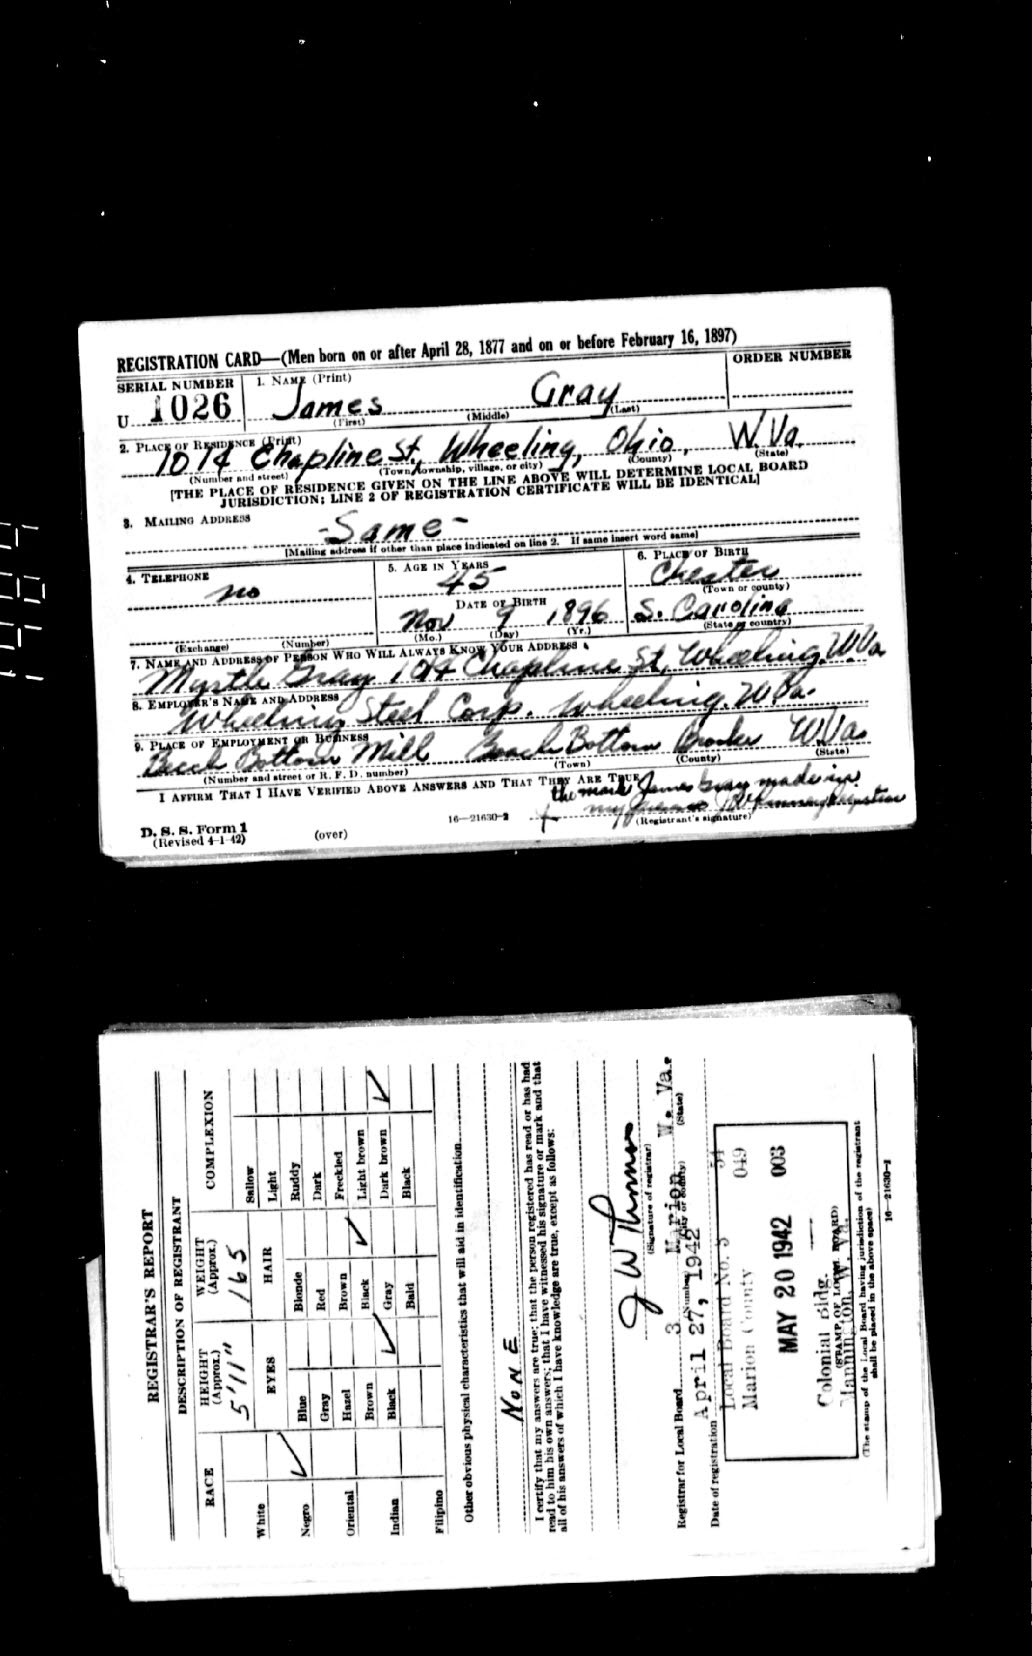 REGISTRATION CARD—(Men born on or after April 28, 1877 and on or before February 16, 1897)
SERIAL NUMBER
1. NAME (Print)
ORDER NUMBER
U 1026
James Gray
(First) (Middle) (Last)
2. PLACE OF RESIDENCE (Print)
1014 Chapline St, Wheeling, Ohio, W. Va.
(Number and street) (Town, township, village, or city) (County) (State)
[THE PLACE OF RESIDENCE GIVEN ON THE LINE ABOVE WILL DETERMINE LOCAL BOARD
JURISDICTION; LINE 2 OF REGISTRATION CERTIFICATE WILL BE IDENTICAL]
3. MAILING ADDRESS
-Same-
[Mailing address if other than place indicated on line 2. If same insert word same]
4. TELEPHONE
no
(Exchange) (Number)
5. AGE IN YEARS
45
DATE OF BIRTH
Nov 9 1896
(Mo.) (Day) (Yr.)
6. PLACE OF BIRTH
Chester
(Town or county)
S. Carolina
(State or country)
7. NAME AND ADDRESS OF PERSON WHO WILL ALWAYS KNOW YOUR ADDRESS
Myrtle Gray 1014 Chapline St, Wheeling W Va
8. EMPLOYER'S NAME AND ADDRESS
Wheeling Steel Corp. Wheeling. W. Va.
9. PLACE OF EMPLOYMENT OR BUSINESS
Beech Bottom Mill Beech Bottom Brooke W. Va.
(Number and street or R. F. D. number) (Town) (County) (State)
I AFFIRM THAT I HAVE VERIFIED ABOVE ANSWERS AND THAT THEY ARE TRUE.
the mark James Gray made in
my presence
D. S. S. Form 1
(Revised 4-1-42)
(over)
16—21630-2
(Registrant's signature)
REGISTRAR'S REPORT
DESCRIPTION OF REGISTRANT
RACE
HEIGHT (Approx.)
WEIGHT (Approx.)
COMPLEXION
5'11"
165
EYES
HAIR
White
Negro
Oriental
Indian
Filipino
Blue
Gray
Hazel
Brown
Black
Blonde
Red
Brown
Black
Gray
Bald
Sallow
Light
Ruddy
Dark
Freckled
Light brown
Dark brown
Black
Other obvious physical characteristics that will aid in identification
NONE
I certify that my answers are true; that the person registered has read or has had
read to him his own answers; that I have witnessed his signature or mark and that
all of his answers of which I have knowledge are true, except as follows:
J W Thomas
(Signature of registrar)
Registrar for Local Board 3 Marion W. Va.
(Number) (City or county) (State)
Date of registration April 27, 1942
Local Board No. 3 54
Marion County 049
MAY 20 1942 003
Colonial Bldg.
Mannington, W. Va.
(STAMP OF LOCAL BOARD)
(The stamp of the Local Board having jurisdiction of the registrant
shall be placed in the above space)
16—21630-1